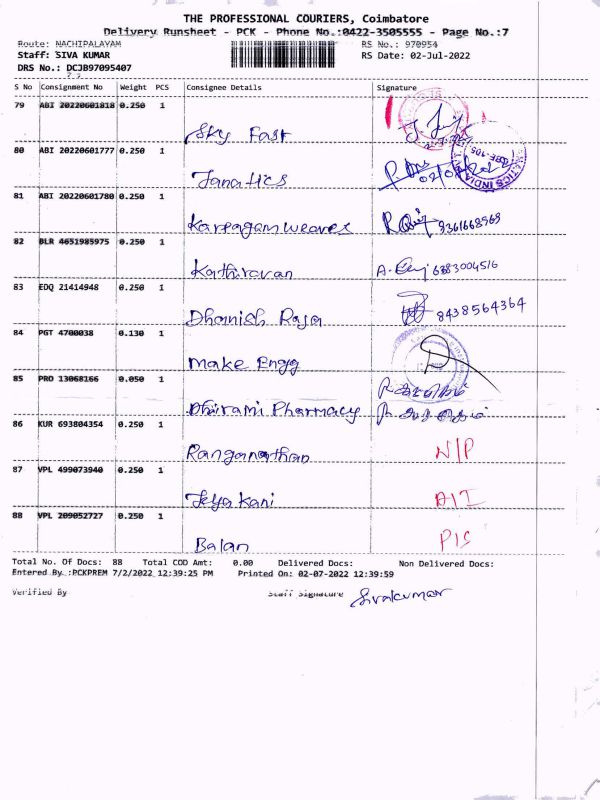 THE PROFESSIONAL COURIERS, Coimbatore
Delivery Runsheet - PCK - Phone No.:0422-3505555 - Page No.:7
Route: NACHIPALAYAM RS No.: 970954
Staff: SIVA KUMAR RS Date: 02-Jul-2022
DRS No.: DCJB97095407
S No Consignment No Weight PCS Consignee Details Signature
79 ABI 20220601818 0.250 1
Sky Fast
80 ABI 20220601777 0.250 1
Janatics
81 ABI 20220601780 0.250 1
Karpagam weaves 9361668968
82 BLR 4651985975 0.250 1
Kathiravan 6383004516
83 EDQ 21414948 0.250 1
Dhanish Raja 8438564364
84 PGT 4700038 0.130 1
Make Engg
85 PRO 13068166 0.050 1
Dhirami Pharmacy
86 KUR 693804354 0.250 1
Ranganathan N/P
87 VPL 499073940 0.250 1
Jeya kani
88 VPL 209052727 0.250 1
Balan
Total No. Of Docs: 88 Total COD Amt: 0.00 Delivered Docs: Non Delivered Docs:
Entered By :PCKPREM 7/2/2022 12:39:25 PM Printed On: 02-07-2022 12:39:59
Verified By Staff Signature Sivakumar